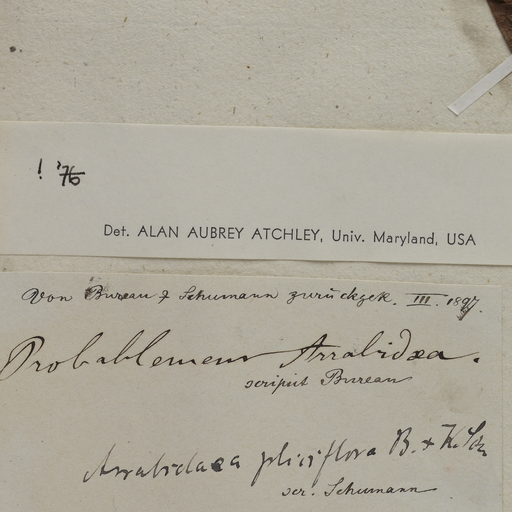 ! '76
Det. ALAN AUBREY ATCHLEY, Univ. Maryland, USA
Von Bureau & Schumann zurückgek. III. 1897.
Probablement Arrabidæa.
scripsit Bureau
Arrabidaea pliciflora B. & K. Sch.
scr. Schumann